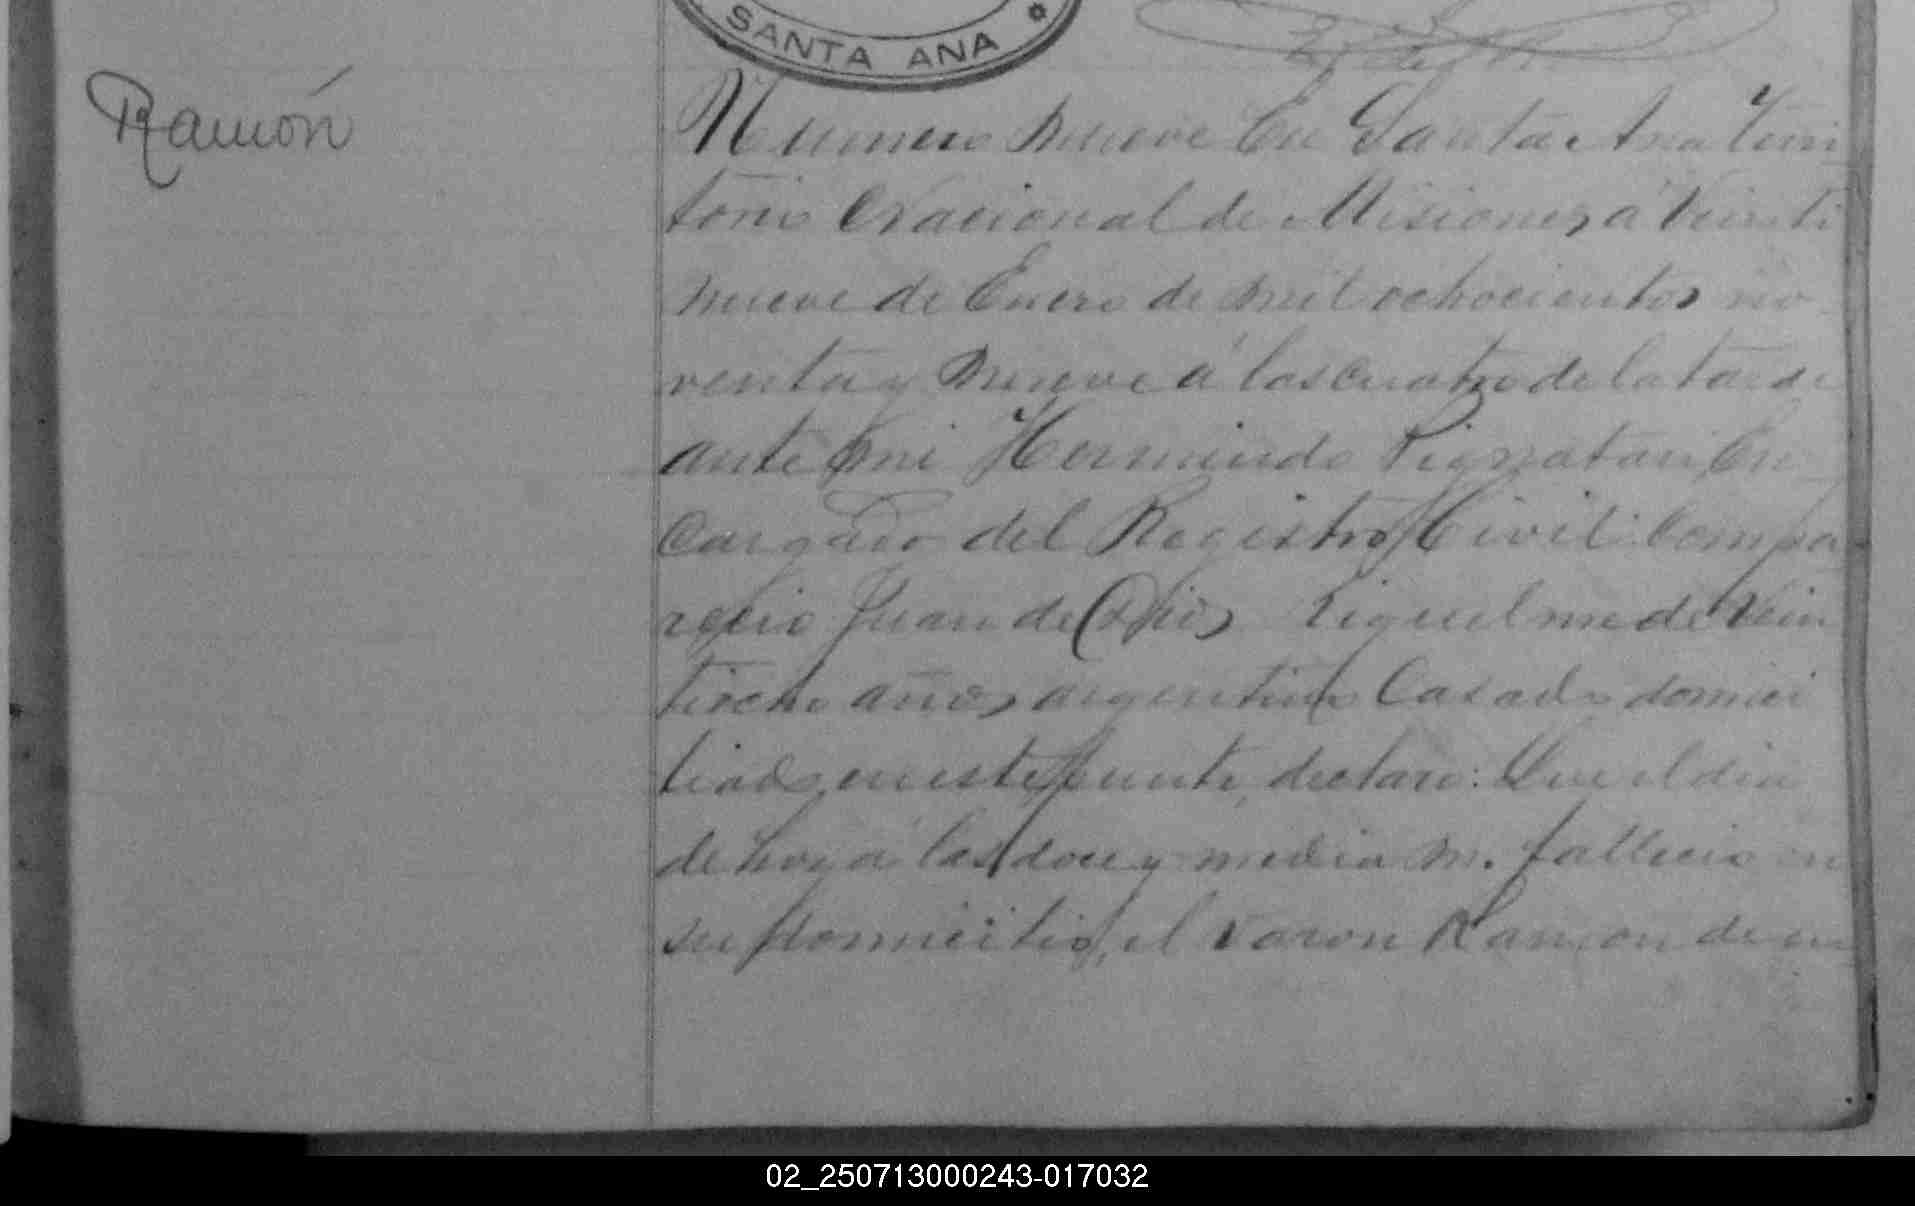 SANTA ANA
Ramón
Numero nueve En Santa Ana Terri
torio Nacional de Misiones, á Veinti
nueve de Enero de mil ochocientos no
venta y nueve á las cuatro de la tarde
ante mi Hermindo Pignatari, En
cargado del Registro Civil: Compa
recio Juan de Dios Riquelme de Vein
tiocho años, argentino Casado domici
liado en este punto, declaro: Que el dia
de hoy á las doce y media m. fallecio en
su domicilio, el varon Ramon de un
02_250713000243-017032